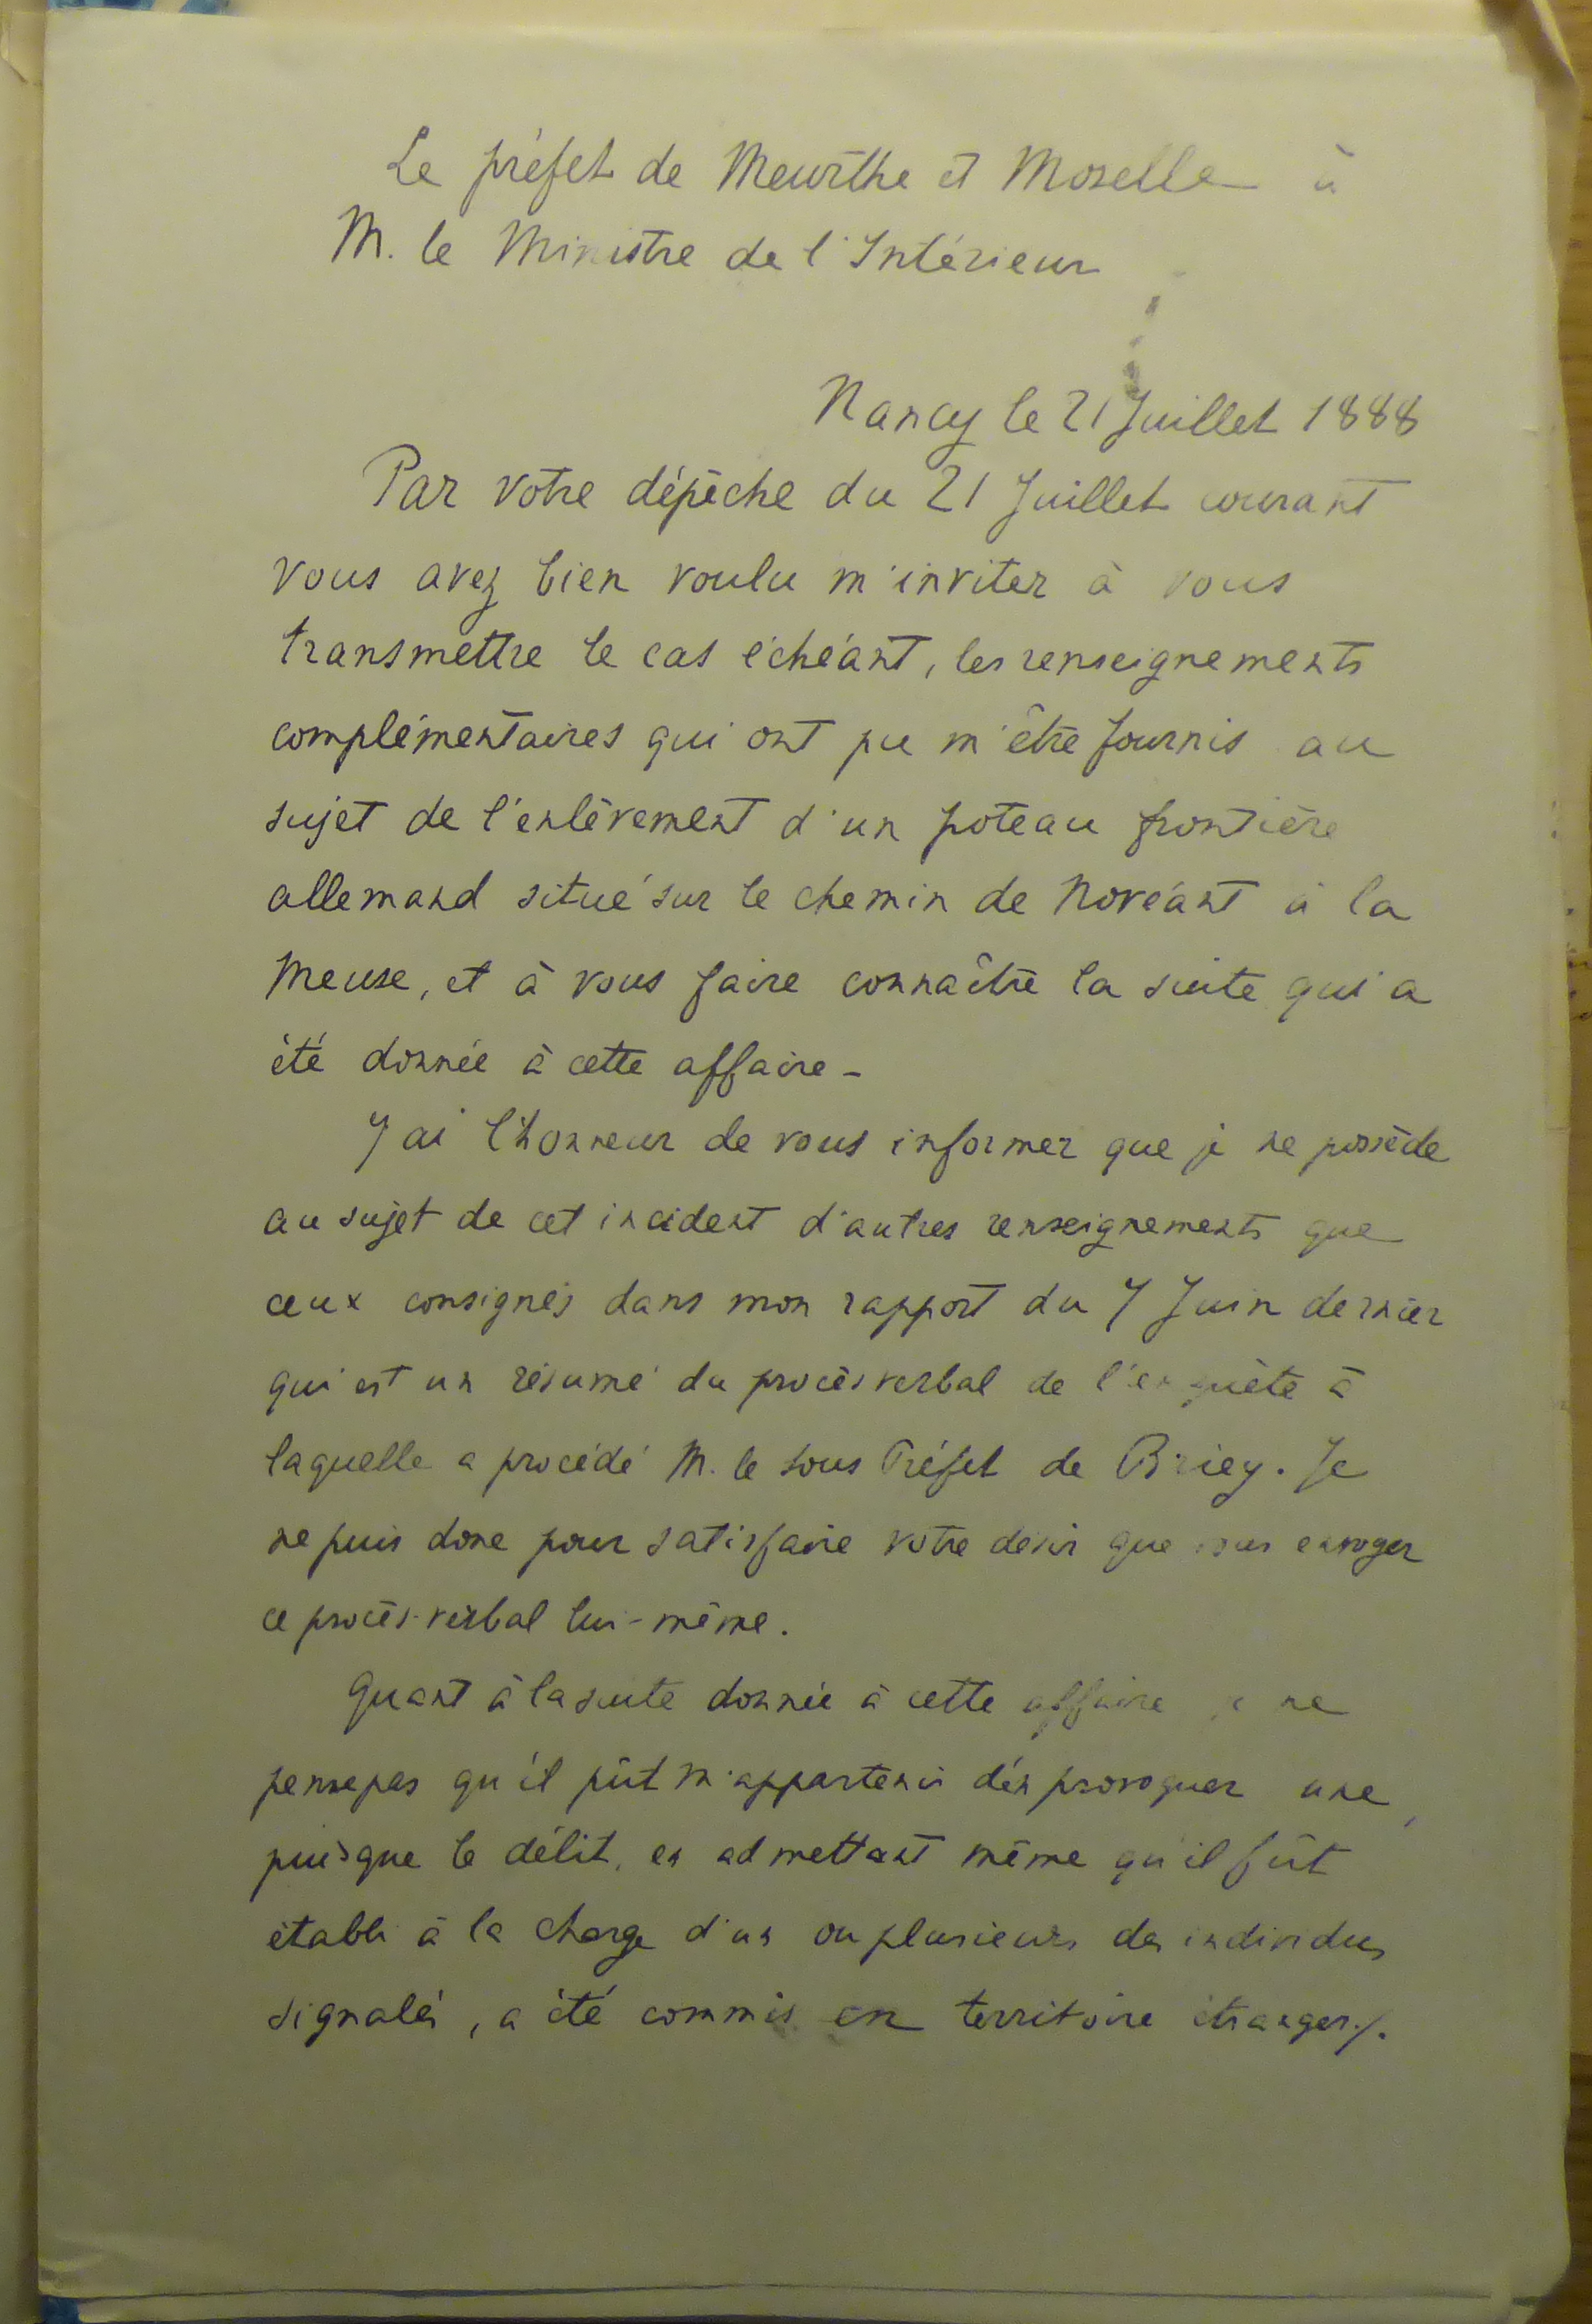 Le préfet de Meurthe et Moselle à
M. le Ministre de l'Intérieur
Nancy le 21 Juillet 1888
Par votre dépêche du 21 Juillet courant
vous avez bien voulu m'inviter à vous
transmettre le cas échéant, les renseignements
complémentaires qui ont pu m'être fournis au
sujet de l'enlèvement d'un poteau frontière
allemand situé sur le chemin de Novéant à la
Meuse, et à vous faire connaître la suite qui a
été donnée à cette affaire -
J'ai l'honneur de vous informer que je ne possède
au sujet de cet incident d'autres renseignements que
ceux consignés dans mon rapport du 7 Juin dernier
qui est un résumé du procès verbal de l'enquête à
laquelle a procédé M. le Sous Préfet de Briey. Je
ne puis donc pour satisfaire votre désir que vous envoyer
ce procès-verbal lui-même.
Quant à la suite donnée à cette affaire je ne
pense pas qu'il pût m'appartenir d'en provoquer une,
puisque le délit, en admettant même qu'il fût
établi à la charge d'un ou plusieurs des individus
signalés, a été commis en territoire étranger./.